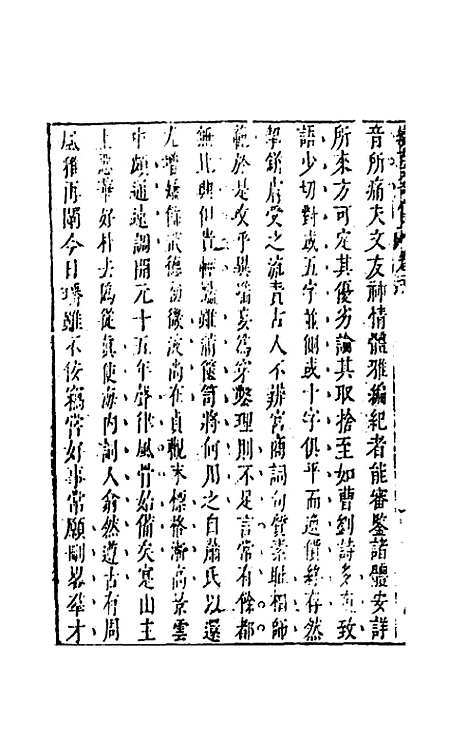 音所痛夫文友神情體雅編紀者能審鑒諸體安詳
所來方可定其優劣論其取捨至如曹劉詩多直致
語少切對或五字並側或十字俱平而逸價終存然
挈鉼膚受之流責古人不辨宮商詞句質素恥相師
範於是攻乎異端妄爲穿鑿理則不足言常有餘都
無比興但貴輕豔雖滿篋笥將何用之自蕭氏以還
尤增矯飾武德初微波尚在貞觀末標格漸高景雲
中頗通遠調開元十五年聲律風骨始備矣寔由主
上惡華好朴去偽從真使海内詞人翕然遵古有周
風雅再闡今日璠雖不佞竊常好事常願刪畧羣才